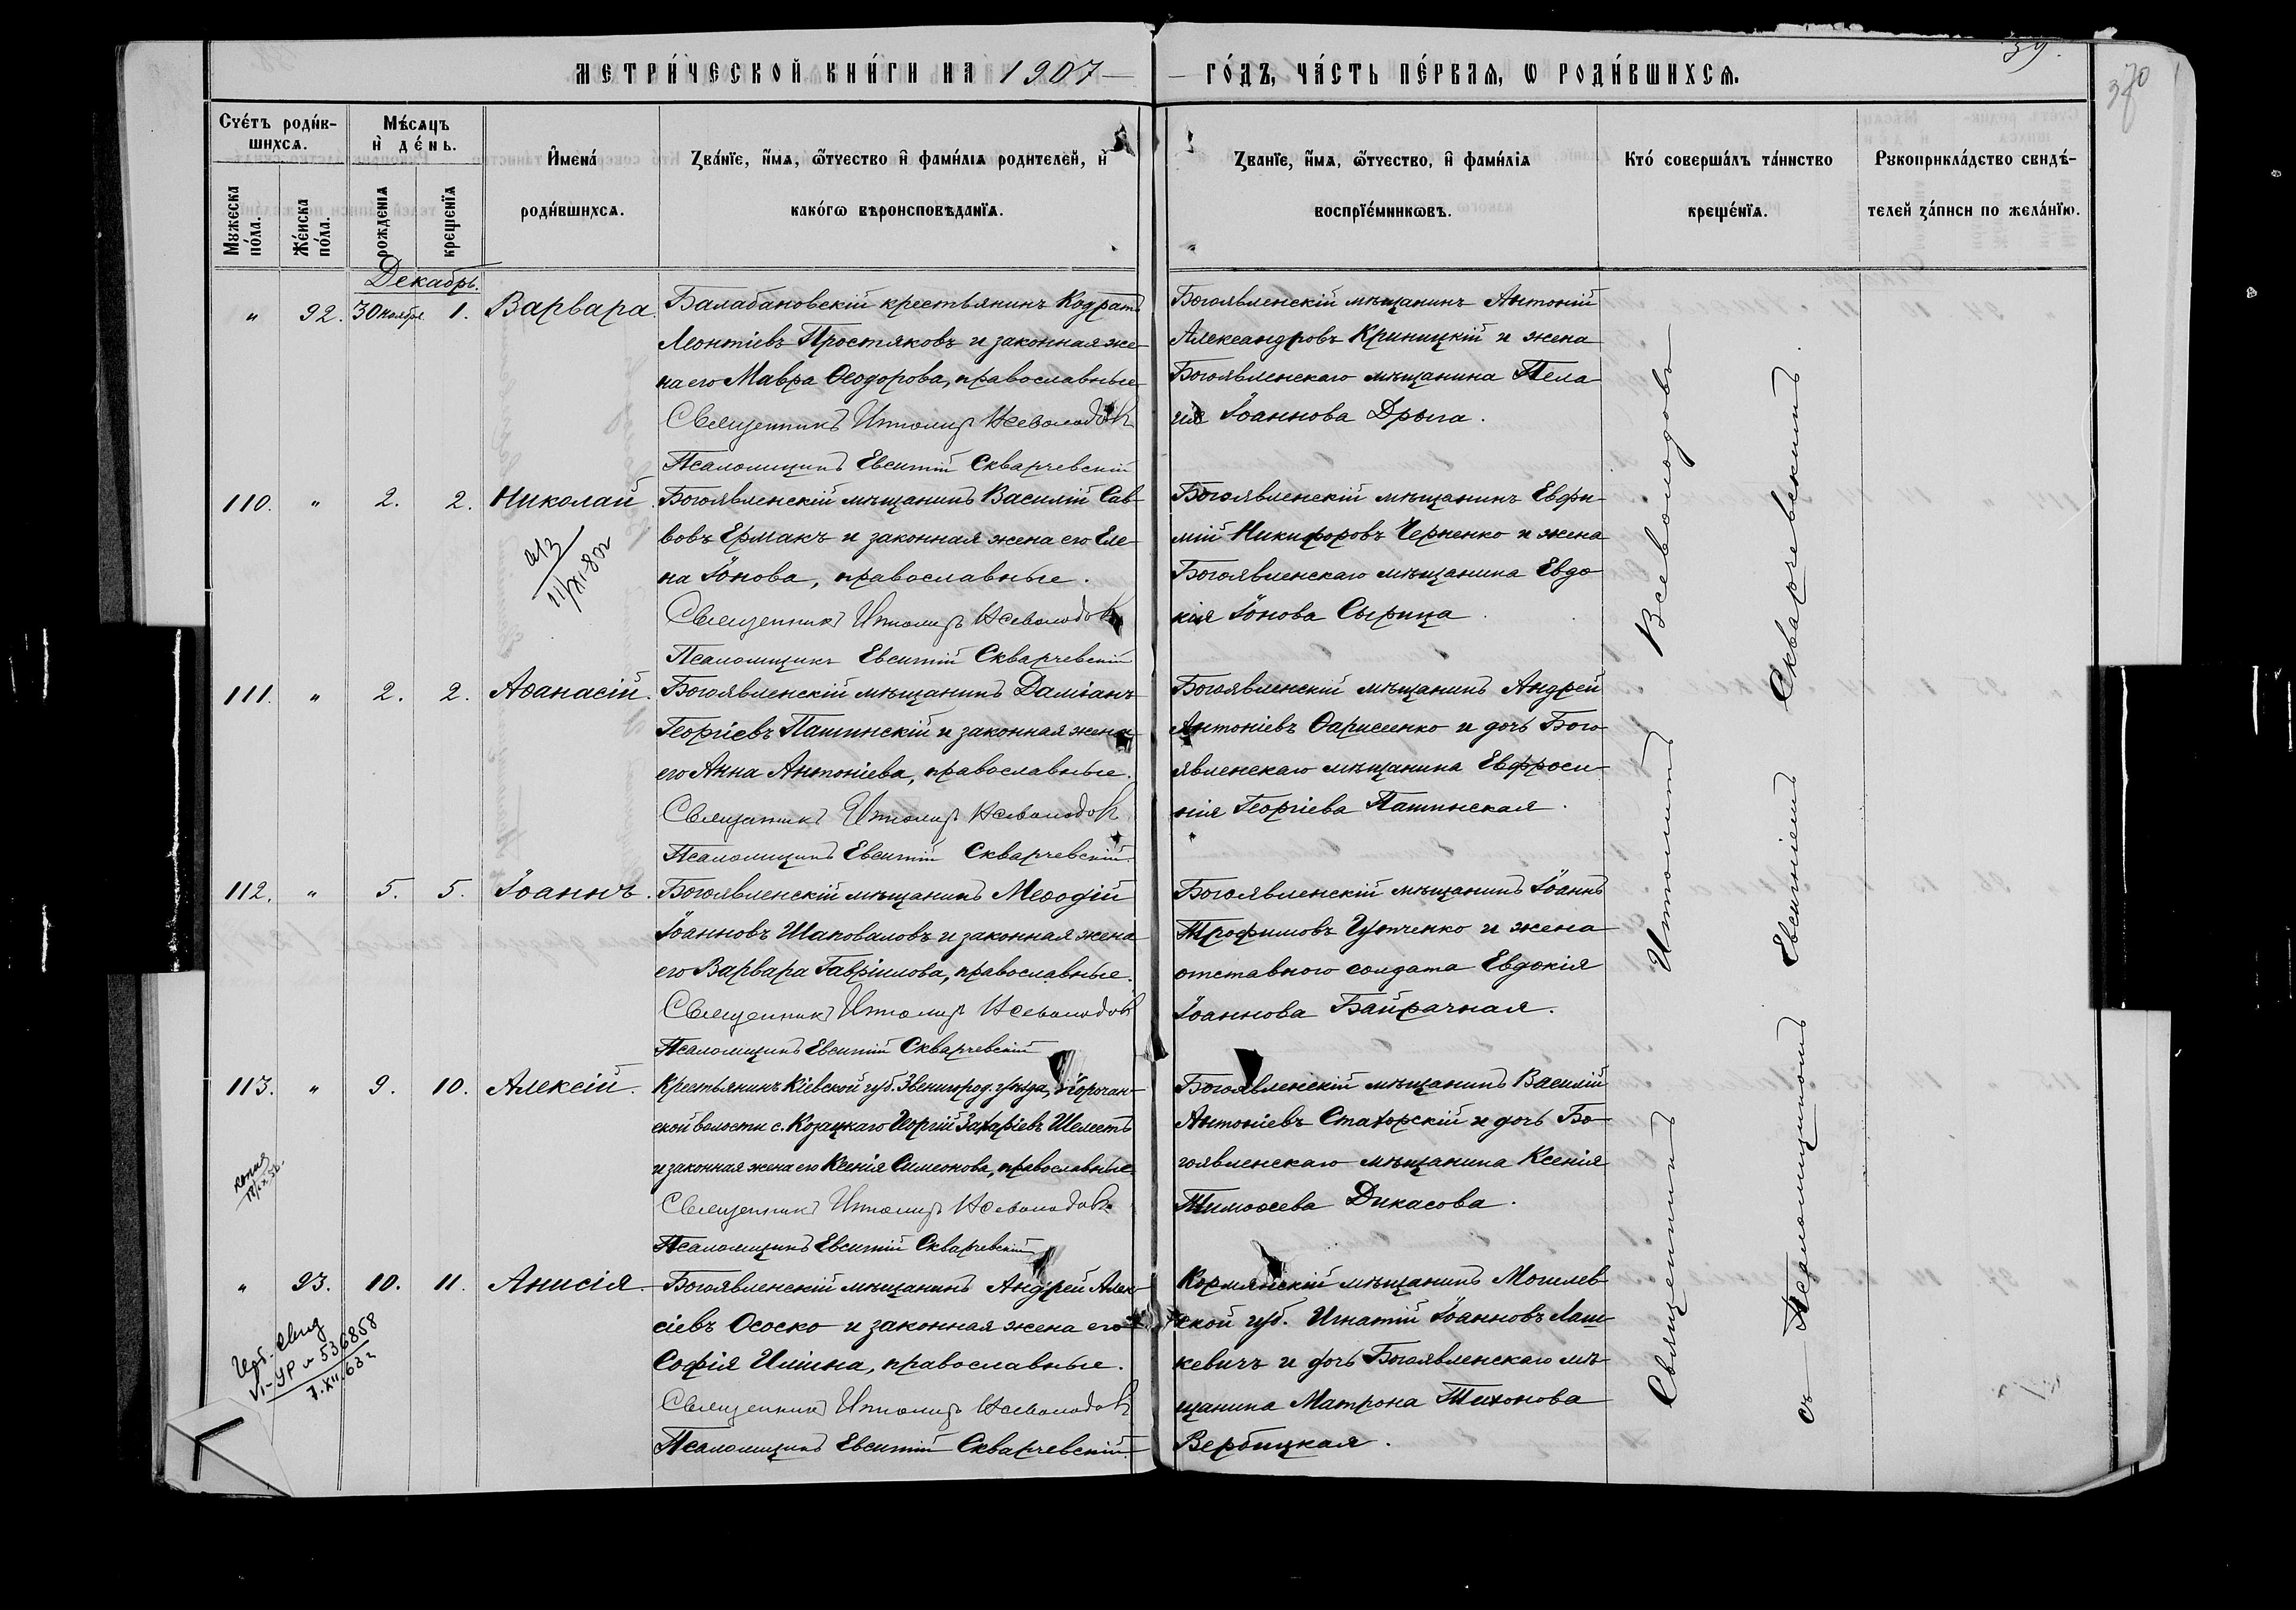 МЕТРИ́ЧЕСКОЙ КНИ́ГИ НА 1907
ГО́ДЪ, ЧА́СТЬ ПЕ́РВАѦ, Ѡ РОДИ́ВШИХСѦ.
39.
370
Счétъ роди́в-
шихсѧ.
Мꙋжеска по́ла.
Же́нска по́ла.
Мѣ́сѧцъ
и҆ де́нь.
рожденїѧ
крещенїѧ
И҆мена́
роди́вшихсѧ.
Зва́нїе, и҆́мѧ, ѻ҆́тчество и҆ фами́лїѧ родителей, и҆
како́гѡ вѣроисповѣданїѧ.
Званїе, и҆́мѧ, ѻ҆́тчество, и҆ фами́лїѧ
воспрїе́мникѡвъ.
Кто́ соверша́лъ та́инство
креще́нїѧ.
Рꙋкоприкла́дство свидѣ́-
телей за́писи по жела́нїю.
Декабрь.
" 92. 30 ноября 1. Варвара.
Балабановскій крестьянинъ Кодратъ
Леонтіевъ Простяковъ и законная же-
на его Мавра Ѳеодорова, православные
Священникъ Ипполитъ Всеволодовъ
Псаломщикъ Евсигній Скварчевскій
Богоявленскій мѣщанинъ Антоній
Александровъ Криницкій и жена
Богоявленскаго мѣщанина Пела-
гія Іоаннова Дрыга.
110. " 2. 2. Николай.
Богоявленскій мѣщанинъ Василій Сав-
вовъ Ермакъ и законная жена его Еле-
на Іонова, православные.
Священникъ Ипполитъ Всеволодовъ
Псаломщикъ Евсигній Скварчевскій
Богоявленскій мѣщанинъ Евфи-
мій Никифоровъ Черненко и жена
Богоявленскаго мѣщанина Евдо-
кія Іонова Сырица.
111. " 2. 2. Аѳанасій.
Богоявленскій мѣщанинъ Даміанъ
Георгіевъ Пашинскій и законная жена
его Анна Антоніева, православные.
Священникъ Ипполитъ Всеволодовъ
Псаломщикъ Евсигній Скварчевскій.
Богоявленскій мѣщанинъ Андрей
Антоніевъ Фарисеенко и дочь Бого-
явленскаго мѣщанина Евфроси-
нія Георгіева Пашинская.
112. " 5. 5. Іоаннъ.
Богоявленскій мѣщанинъ Меѳодій
Іоанновъ Шаповаловъ и законная жена
его Варвара Гавріилова, православные.
Священникъ Ипполитъ Всеволодовъ
Псаломщикъ Евсигній Скварчевскій
Богоявленскій мѣщанинъ Іоаннъ
Трофимовъ и жена
отставного солдата Евдокія
Іоаннова Байрачная.
113. " 9. 10. Алексій.
Крестьянинъ Кіевской губ. Звенигород. уѣзда,
ской волости с. Козацкаго Георгій Захаріевъ Шелестъ
и законная жена его Ксенія Симеонова, православные
Священникъ Ипполитъ Всеволодовъ
Псаломщикъ Евсигній Скварчевскій
Богоявленскій мѣщанинъ Василій
Антоніевъ Статорскій и дочь Бо-
гоявленскаго мѣщанина Ксенія
Тимоѳеева Дикасова.
копия
" 93. 10. 11. Анисія.
Богоявленскій мѣщанинъ Андрей Алек-
сіевъ Ососко и законная жена его
Софія Илiина, православные.
Священникъ Ипполитъ Всеволодовъ
Псаломщикъ Евсигній Скварчевскій
Кормянскій мѣщанинъ Могилев-
ской губ. Игнатій Іоанновъ Лаш-
кевичъ и дочь Богоявленскаго мѣ-
щанина Матрона Тихонова
Вербицкая.
VI-УР № 536858
7.XII.63г
Священникъ Ипполитъ Всеволодовъ
съ Псаломщикомъ Евсигніемъ Скварчевскимъ.